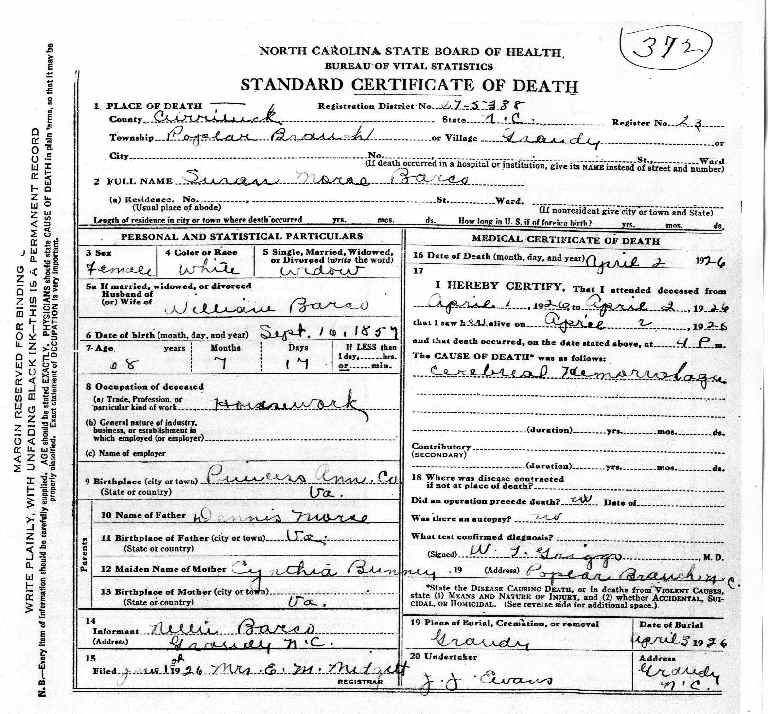 372
NORTH CAROLINA STATE BOARD OF HEALTH
BUREAU OF VITAL STATISTICS
STANDARD CERTIFICATE OF DEATH
1 PLACE OF DEATH Registration District No. 27-5388
County Currituck State N.C. Register No. 23
Township Poplar Branch or Village Grandy or
City No. St., Ward
(If death occurred in a hospital or institution, give its NAME instead of street and number)
2 FULL NAME Susan Morse Barco
(a) Residence. No. St. Ward.
(Usual place of abode) (If nonresident give city or town and State)
Length of residence in city or town where death occurred yrs. mos. ds. How long in U. S. if of foreign birth? yrs. mos. ds.
PERSONAL AND STATISTICAL PARTICULARS
3 Sex 4 Color or Race 5 Single, Married, Widowed, or Divorced (write the word)
Female White Widow
5a If married, widowed, or divorced
Husband of
(or) Wife of William Barco
6 Date of birth (month, day, and year) Sept. 16, 1857
7-Age years Months Days If LESS than
1 day,......hrs.
68 7 17 or......min.
8 Occupation of deceased
(a) Trade, Profession, or
particular kind of work Housework
(b) General nature of industry,
business, or establishment in
which employed (or employer)
(c) Name of employer
9 Birthplace (city or town) Princess Ann. Co
(State or country) Va.
Parents
10 Name of Father Dennis Morse
11 Birthplace of Father (city or town) Va.
(State or country)
12 Maiden Name of Mother Cynthia Bunney
13 Birthplace of Mother (city or town)
(State or country) Va.
14
Informant Nellie Barco
(Address) Grandy N.C.
15
Filed 1926 Mrs. E. M.
REGISTRAR
MEDICAL CERTIFICATE OF DEATH
16 Date of Death (month, day, and year) April 2 1926
17
I HEREBY CERTIFY, That I attended deceased from
April 1, 1926, to April 2, 1926
that I saw her alive on April 2, 1926
and that death occurred, on the date stated above, at 4 P m.
The CAUSE OF DEATH* was as follows:
Cerebral Hemorrhage
(duration) yrs. mos. ds.
Contributory
(SECONDARY)
(duration) yrs. mos. ds.
18 Where was disease contracted
if not at place of death?
Did an operation precede death? no Date of
Was there an autopsy? no
What test confirmed diagnosis?
(Signed) W. T. Griggs M. D.
, 19 (Address) Poplar Branch N.C.
*State the DISEASE CAUSING DEATH, or in deaths from VIOLENT CAUSES,
state (1) MEANS AND NATURE OF INJURY, and (2) whether ACCIDENTAL, SUI-
CIDAL, OR HOMICIDAL. (See reverse side for additional space.)
19 Place of Burial, Cremation, or removal Date of Burial
Grandy April 3 1926
20 Undertaker Address
J. J. Evans Grandy
N.C.
MARGIN RESERVED FOR BINDING
WRITE PLAINLY, WITH UNFADING BLACK INK—THIS IS A PERMANENT RECORD
N. B.—Every item of information should be carefully supplied. AGE should be stated EXACTLY. PHYSICIANS should state CAUSE OF DEATH in plain terms, so that it may be
properly classified. Exact statement of OCCUPATION is very important.